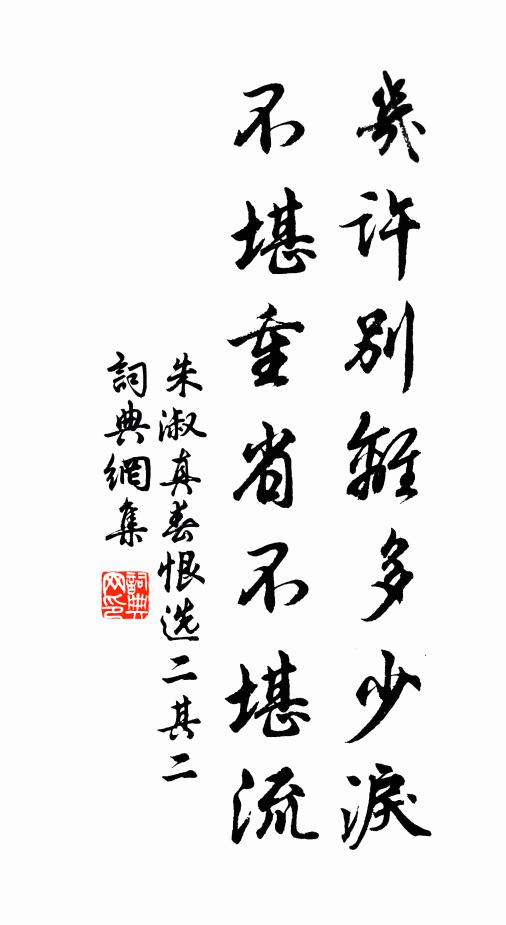 幾許別離多少淚
不堪重省不堪流
朱淑真春恨选二其二
詞典網集
詞典網印